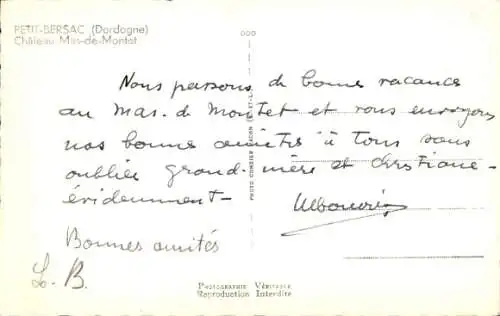 PETIT-BERSAC (Dordogne)
Château Mas-de-Montet
Nous passons de bonnes vacances
au Mas. de Montet et vous envoyons
nos bonnes amitiés à tous sans
oublier grand-mère et Christiane
évidemment-
Bonnes amitiés
L. B.
PHOTOGRAPHIE VÉRITABLE
Reproduction Interdite